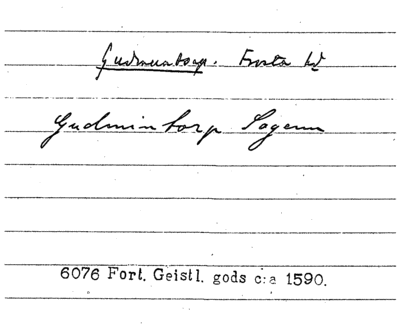 Gudmuntorp. Frosta hd
Gudmintorp Sogenn
6076 Fort. Geistl. gods c:a 1590.